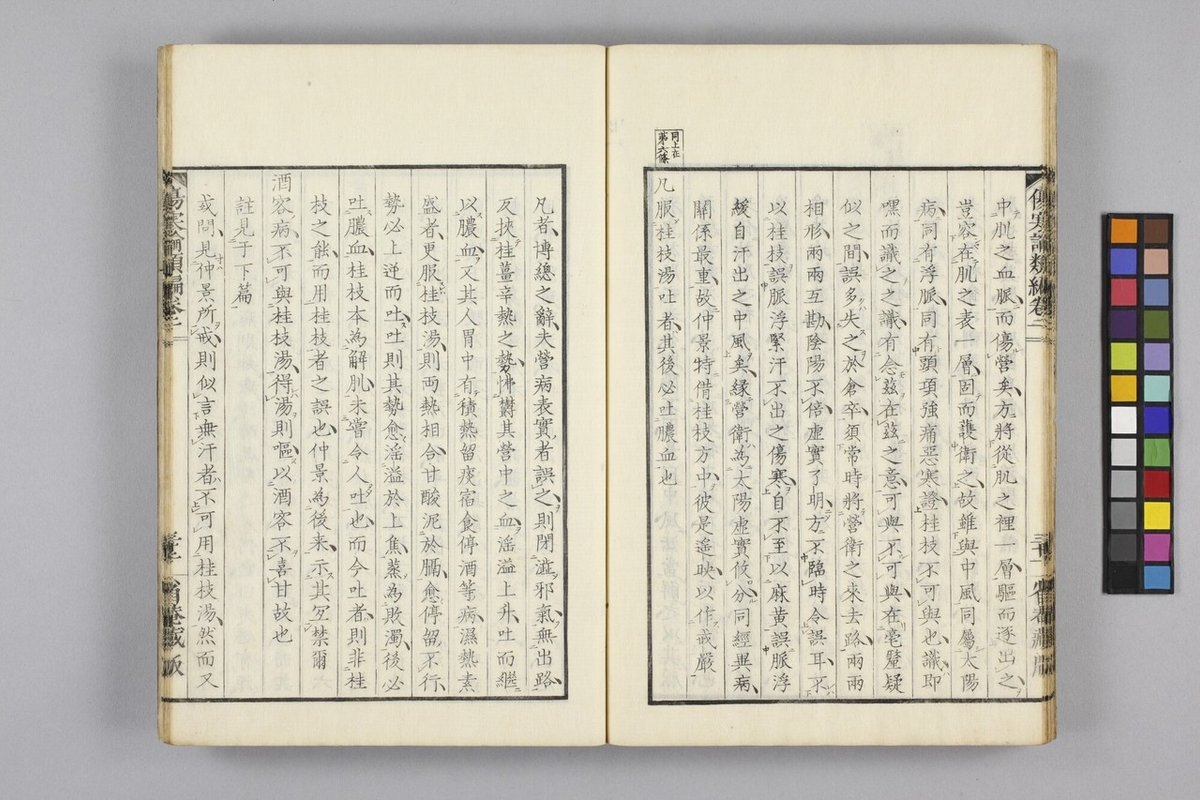 中肌之血脈而傷營矣方將從肌之裡一層驅而逐出之
豈容在肌之表一層固而護衛之故雖與中風同屬太陽
病同有浮脈同有頭項強痛惡寒證桂枝不可與也識即
嘿而識之之識有念茲在茲之意可與不可與在毫釐疑
似之間誤多失之於倉卒須常時將營衛之來去路兩兩
相形兩兩互勘陰陽不倍虛實了明方不臨時令誤耳不
以桂枝誤脈浮緊汗不出之傷寒自不至以麻黃誤脈浮
緩自汗出之中風矣緣營衛為太陽虛實攸分同經異病
關係最重故仲景特借桂枝方中彼是遙映以作戒嚴
同上在
第六條
凡服桂枝湯吐者其後必吐膿血也
凡者博總之辭夫營病表實者誤之則閉滋邪氣無出路
又挾桂薑辛熱之勢怫鬱其營中之血淫溢上升吐而繼
以膿血又其人胃中有積熱留痰宿食停酒等病濕熱素
盛者更服桂枝湯則兩熱相合甘酸泥於膈愈停留不行
勢必上逆而吐吐則其勢愈淫溢於上焦蒸為敗濁後必
吐膿血桂枝本為解肌未嘗令人吐也而今吐者則非桂
枝之能而用桂枝者之誤也仲景為後来示其冝禁爾
酒客病不可與桂枝湯得湯則嘔以酒客不喜甘故也
註見于下篇
或問見仲景所戒則似言無汗者不可用桂枝湯然而又